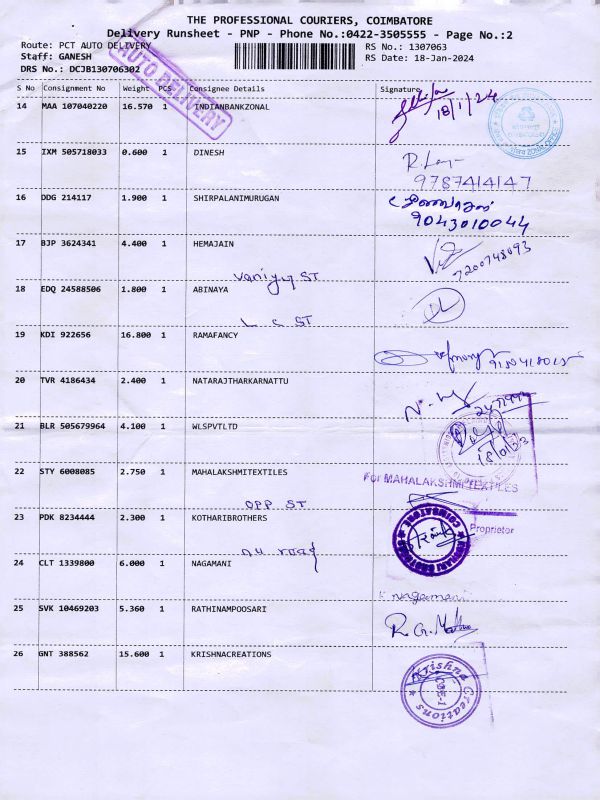 THE PROFESSIONAL COURIERS, COIMBATORE
Delivery Runsheet - PNP - Phone No.:0422-3505555 - Page No.:2
Route: PCT AUTO DELIVERY
RS No.: 1307063
Staff: GANESH
RS Date: 18-Jan-2024
DRS No.: DCJB130706302
AUTO DELIVERY
S No Consignment No Weight PCS Consignee Details Signature
14 MAA 107040220 16.570 1 INDIANBANKZONAL
18/1/24
15 IXM 505718033 0.600 1 DINESH
9787414147
16 DDG 214117 1.900 1 SHIRPALANIMURUGAN
9043010044
17 BJP 3624341 4.400 1 HEMAJAIN
7200748093
vaniyq ST
18 EDQ 24588506 1.800 1 ABINAYA
L C ST
19 KDI 922656 16.800 1 RAMAFANCY
20 TVR 4186434 2.400 1 NATARAJTHARKARNATTU
21 BLR 505679964 4.100 1 WLSPVTLTD
22 STY 6008085 2.750 1 MAHALAKSHMITEXTILES
For MAHALAKSHMI TEXTILES
OPP ST
23 PDK 8234444 2.300 1 KOTHARIBROTHERS
Proprietor
KOTHARI BROTHERS
COIMBATORE
24 CLT 1339800 6.000 1 NAGAMANI
Nagamani
25 SVK 10469203 5.360 1 RATHINAMPOOSARI
26 GNT 388562 15.600 1 KRISHNACREATIONS
Krishna Creations
CBE-1